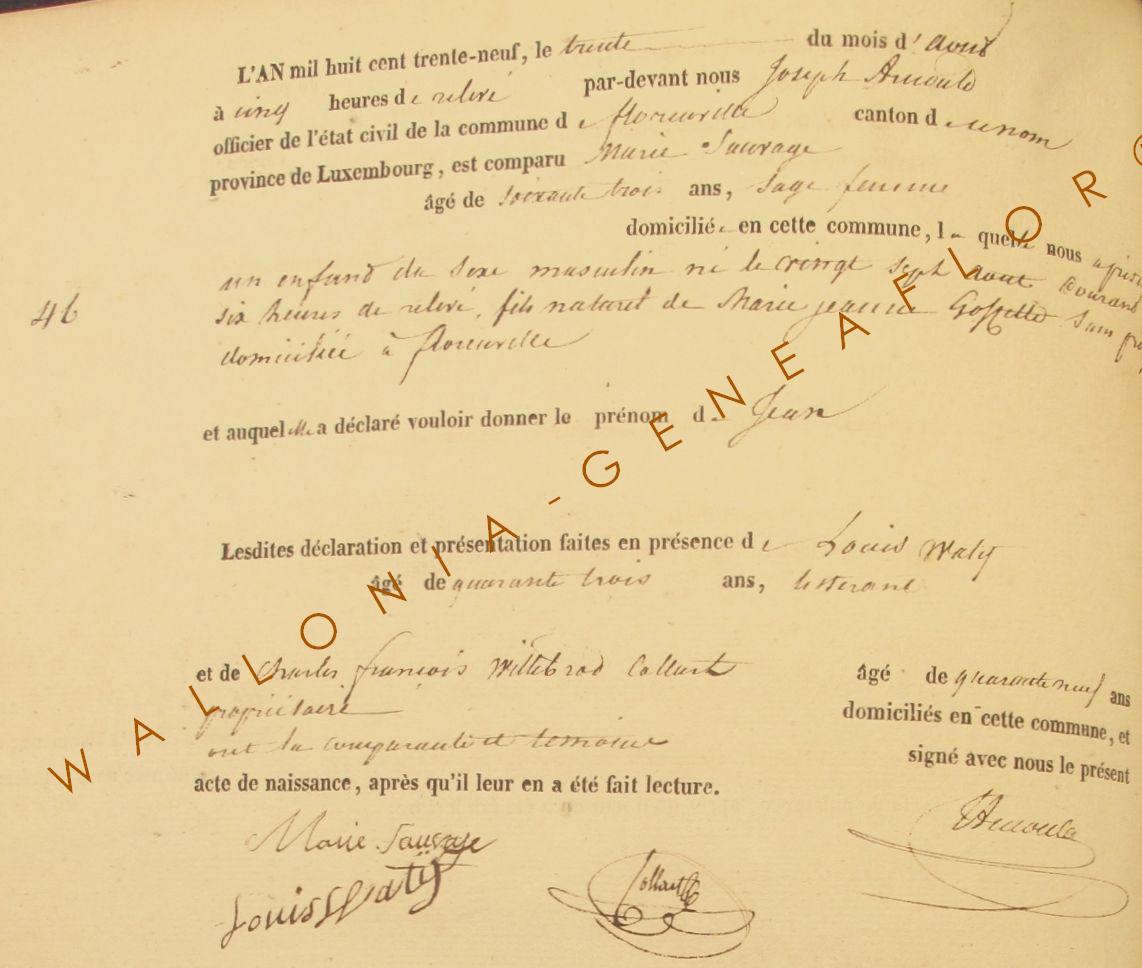 L'AN mil huit cent trente-neuf, le trente du mois d' aout
à cinq heures de relevé par-devant nous Joseph Arnould
officier de l'état civil de la commune de florenville canton de ce nom
province de Luxembourg, est comparu Marie Sauvage
âgé de soixante trois ans, sage femme
domiciliée en cette commune, la quelle nous a
46
un enfant du sexe masculin né le vingt sept aout courant
six heures de relevé, fils naturel de Marie jeanne sans
domiciliée à florenville
et auquel elle a déclaré vouloir donner le prénom de Jean
Lesdites déclaration et présentation faites en présence de Louis Waty
âgé de quarante trois ans,
et de Charles françois Willebrod Collart âgé de quarante neuf ans
propriétaire domiciliés en cette commune, et
ont la comparante et temoins signé avec nous le présent
acte de naissance, après qu'il leur en a été fait lecture.
Marie Sauvage
JArnould
Louis Waty
Collart
WALLONIA-GENEAFLOR